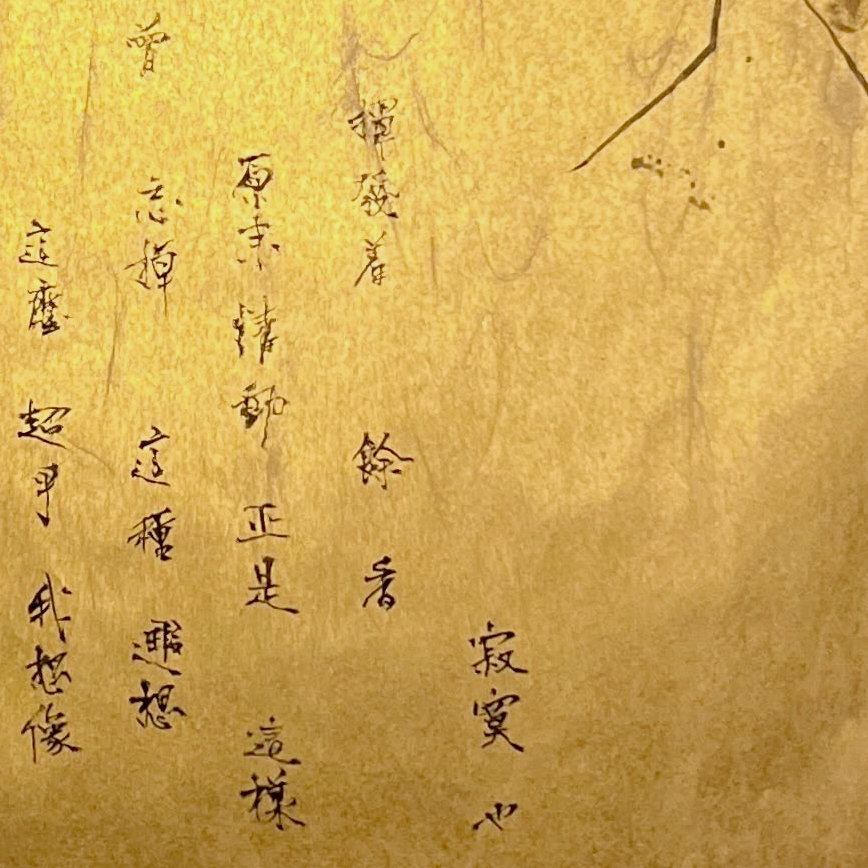 寂寞也
揮發着 餘香
原來情動 正是 這樣
曾 忘掉 這種 遐想
這麼 超乎 我想像